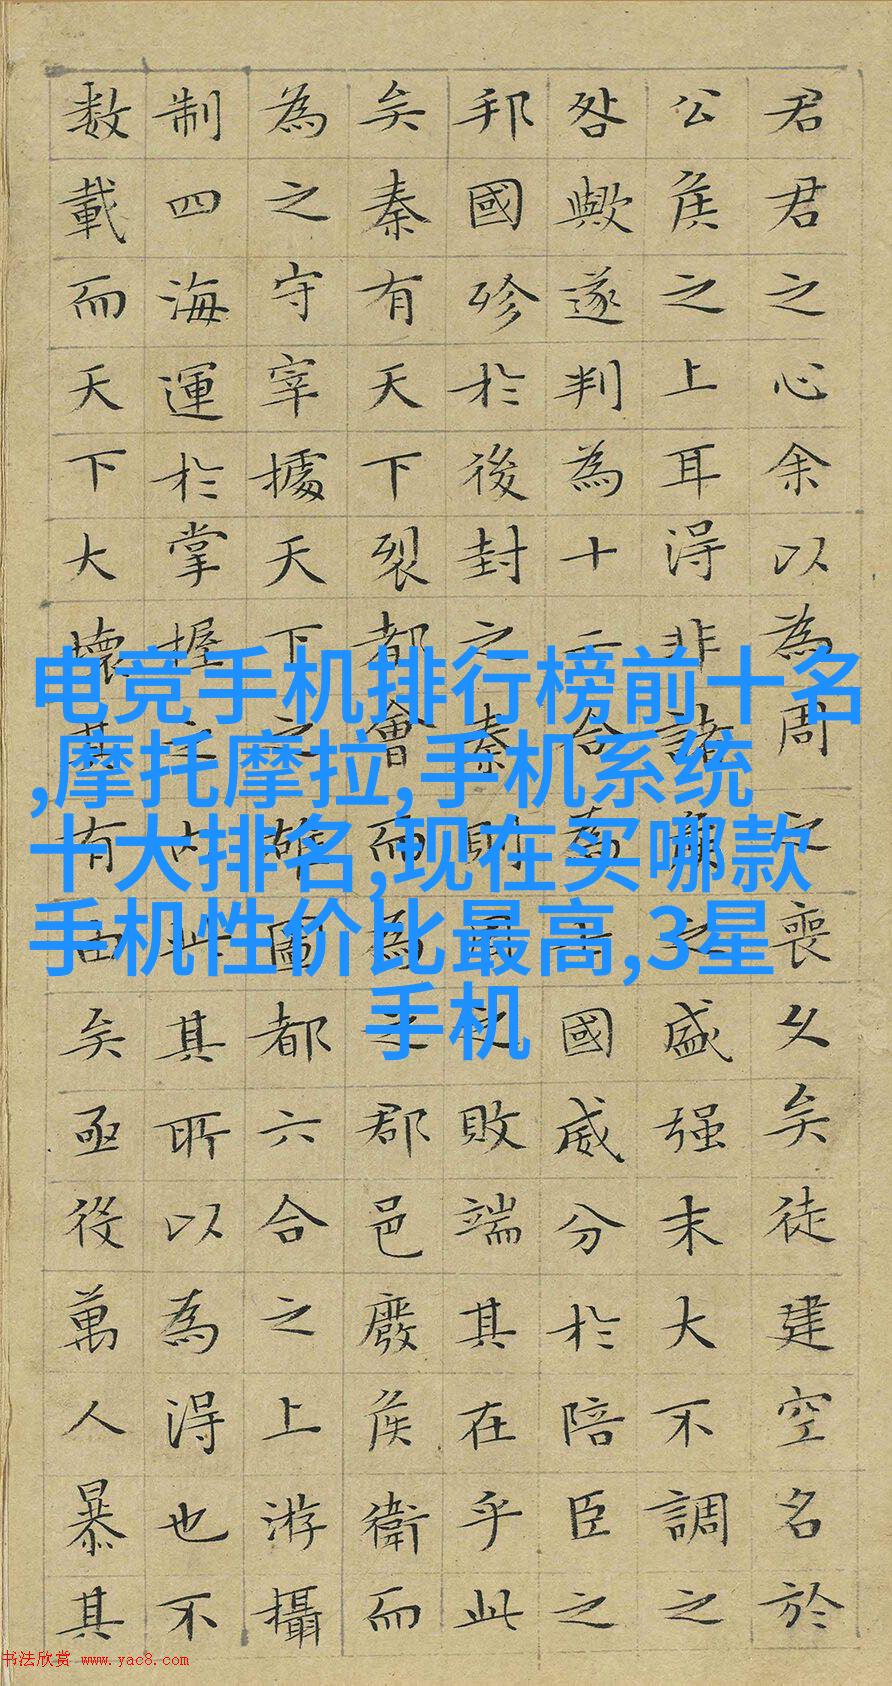 君君之心余以為周之喪久矣徒建空名於
公侯之上耳得非諸侯之盛强末大不調之
咎歟遂判為十二合為七國威分於陪臣之
邦國殄於後封之秦則周之敗端其在乎此
矣秦有天下裂都會而為之郡邑廢侯衛而
為之守宰據天下之雄圖都六合之上游攝
制四海運於掌握之内此其所以為得也不
数載而天下大壞其有由矣亟役萬人暴其
电竞手机排行榜前十名
,摩托摩拉,手机系统
十大排名,现在买哪款
手机性价比最高,3星
手机
书法欣赏 www.yac8.com